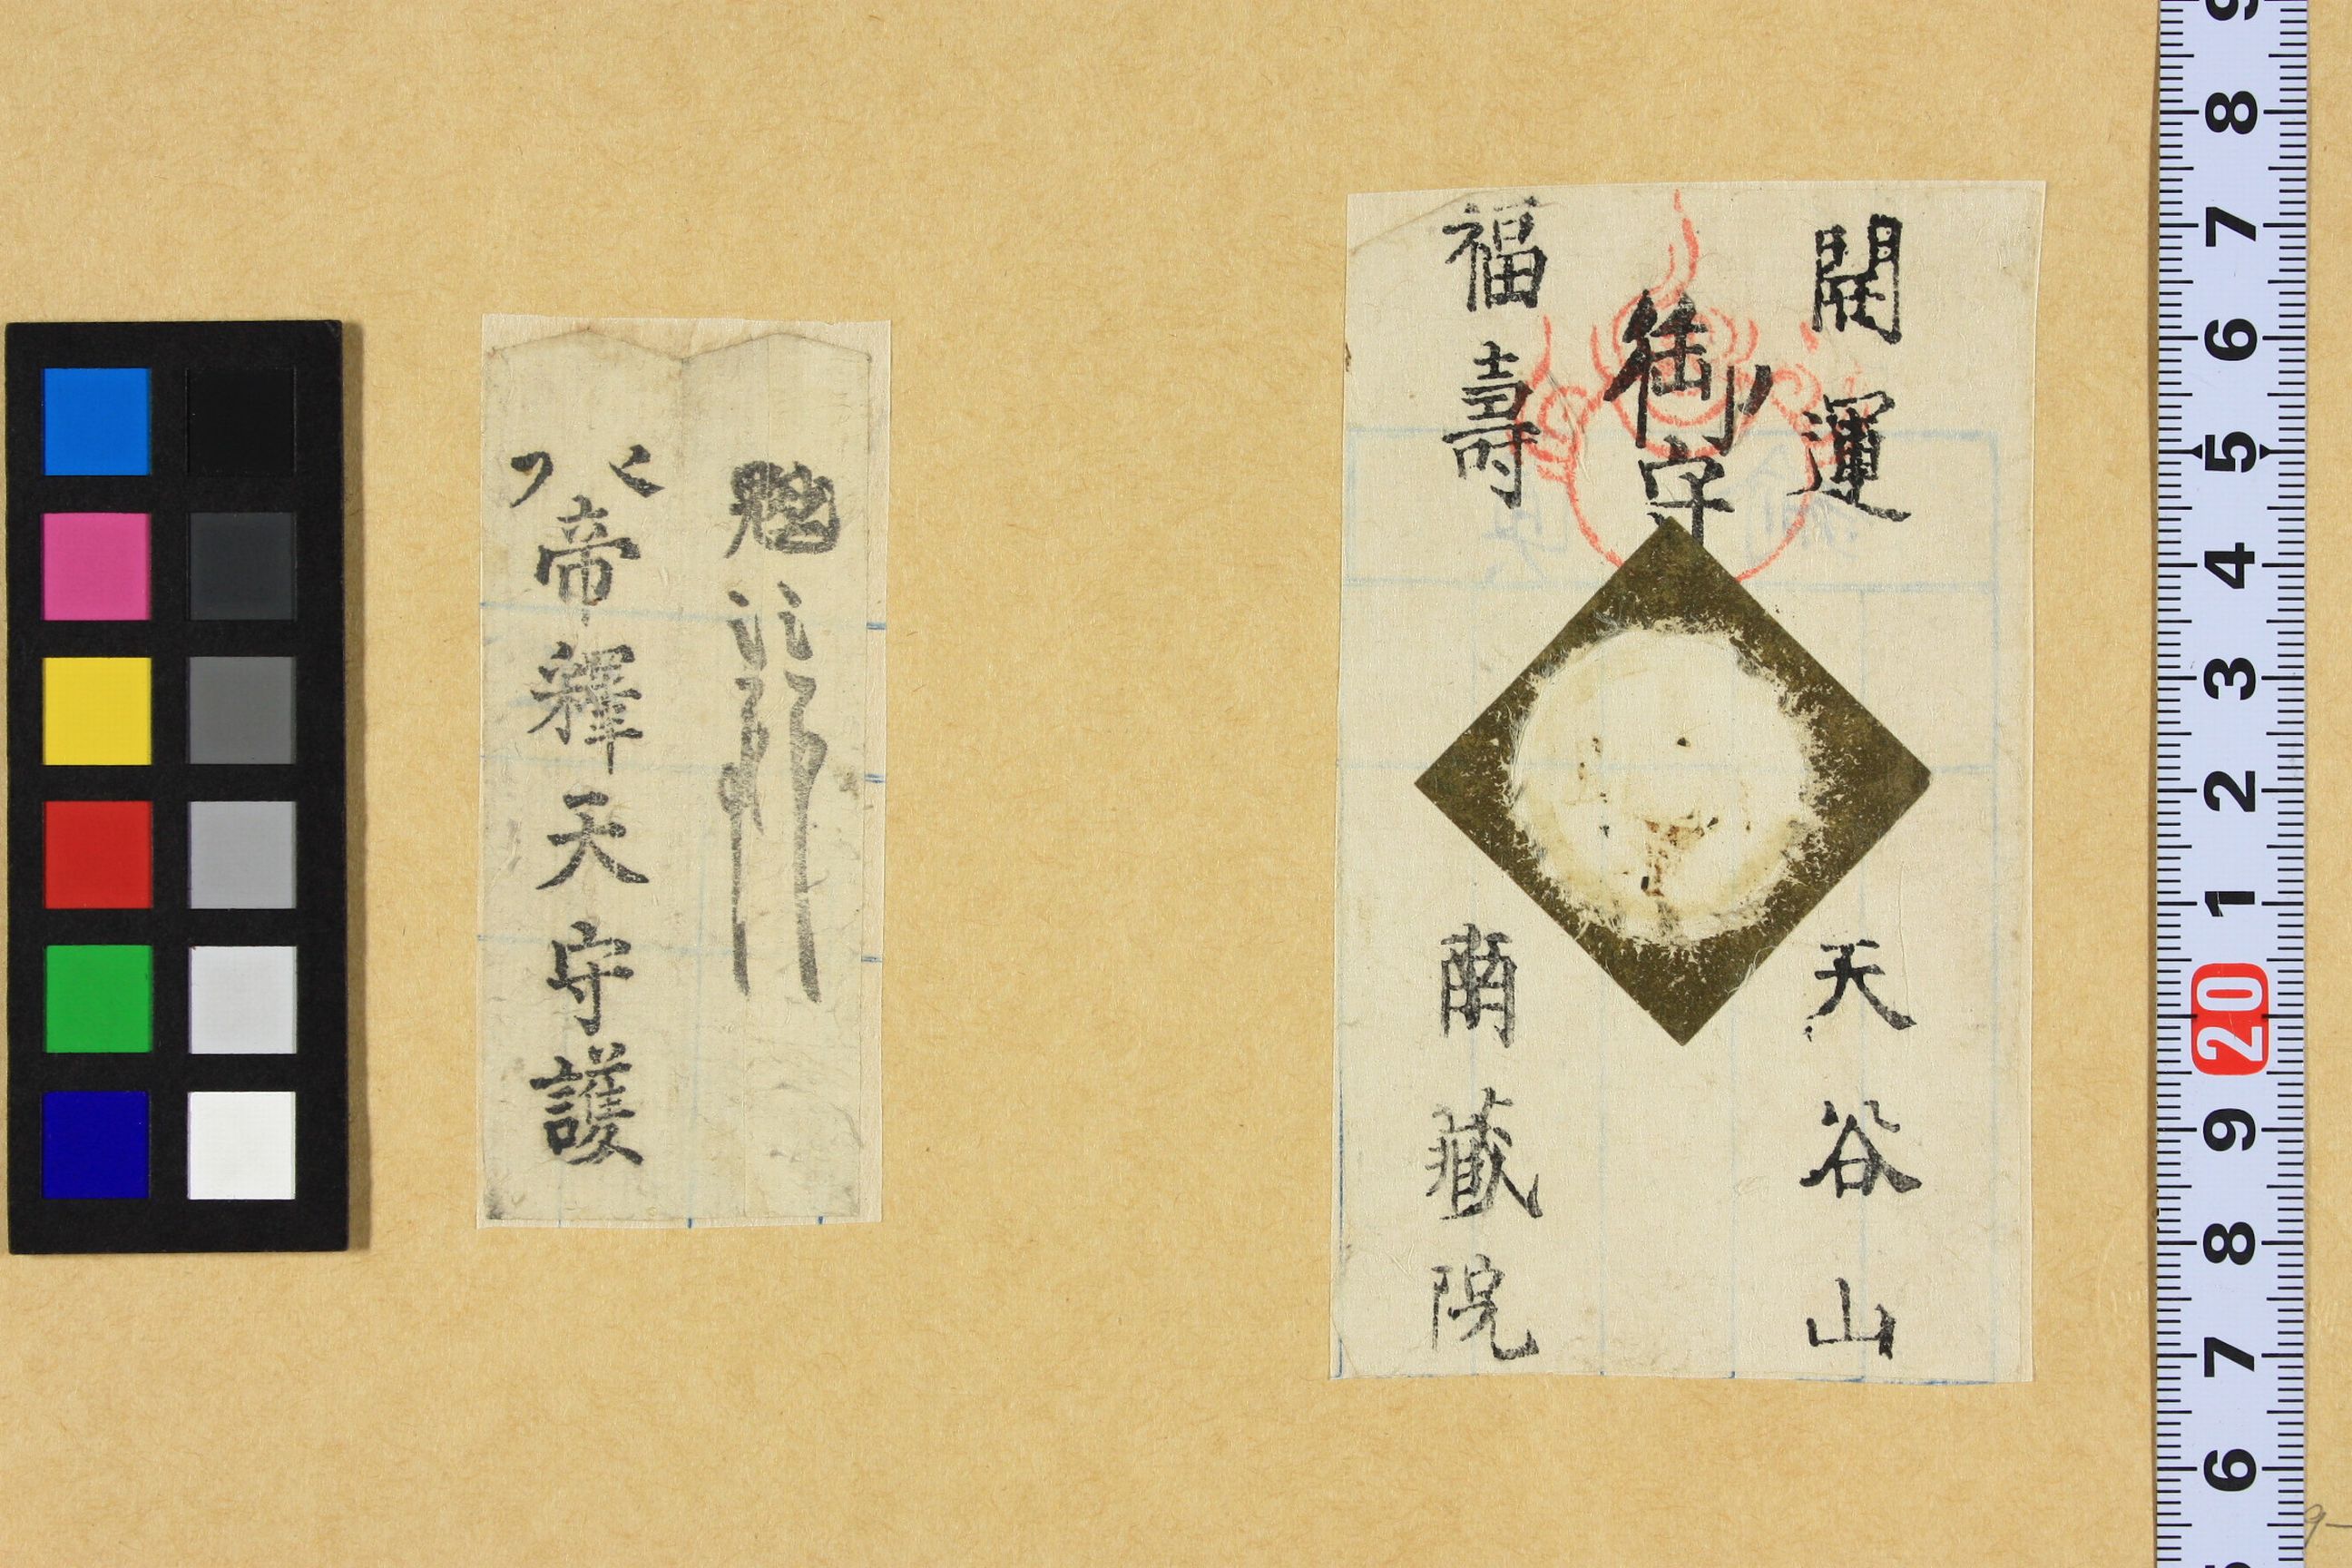 開運
御守
福壽
天谷山
南藏院
帝釋天守護
9
8
7
6
5
4
3
2
1
20
9
8
7
6